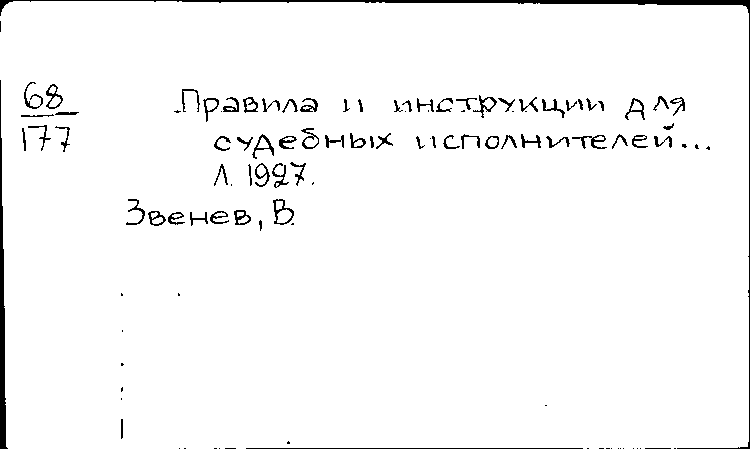 68
177
Правила и инструкции для
судебных исполнителей...
Л. 1927.
Звенев, В.